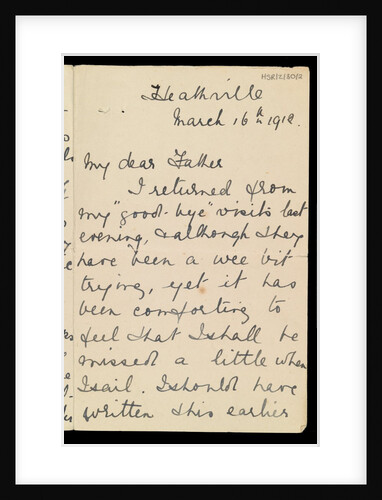 HJR/2/80/2
Heathville
March 16th 1912.
My dear Father
I returned from
my "good-bye" visits last
evening, & although they
have been a wee bit
trying, yet it has
been comforting to
feel that I shall be
missed a little when
I sail. I should have
written this earlier